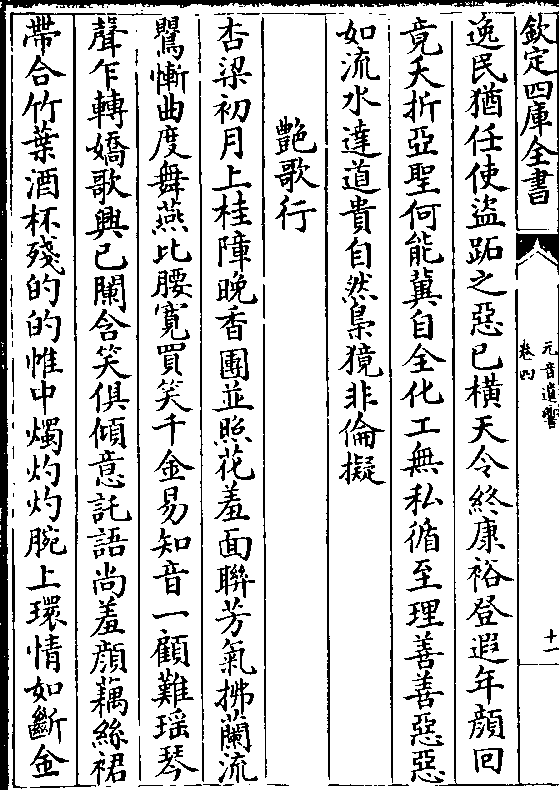 欽定四庫全書
元音遺響
卷四
十一
逸民猶任使盜跖之惡已橫天令終康裕登遐年顔回
竟夭折亞聖何能冀自全化工無私循至理善善惡惡
如流水達道貴自然梟獍非倫擬
艷歌行
杏梁初月上桂障晚香團並照花羞面聯芳氣拂蘭流
鸎慚曲度舞燕比腰寛買笑千金易知音一顧難瑶琴
聲乍轉嬌歌興已闌含笑俱傾意託語尚羞顔藕絲裙
帶合竹葉酒杯殘的的帷中燭灼灼腕上環情如斷金